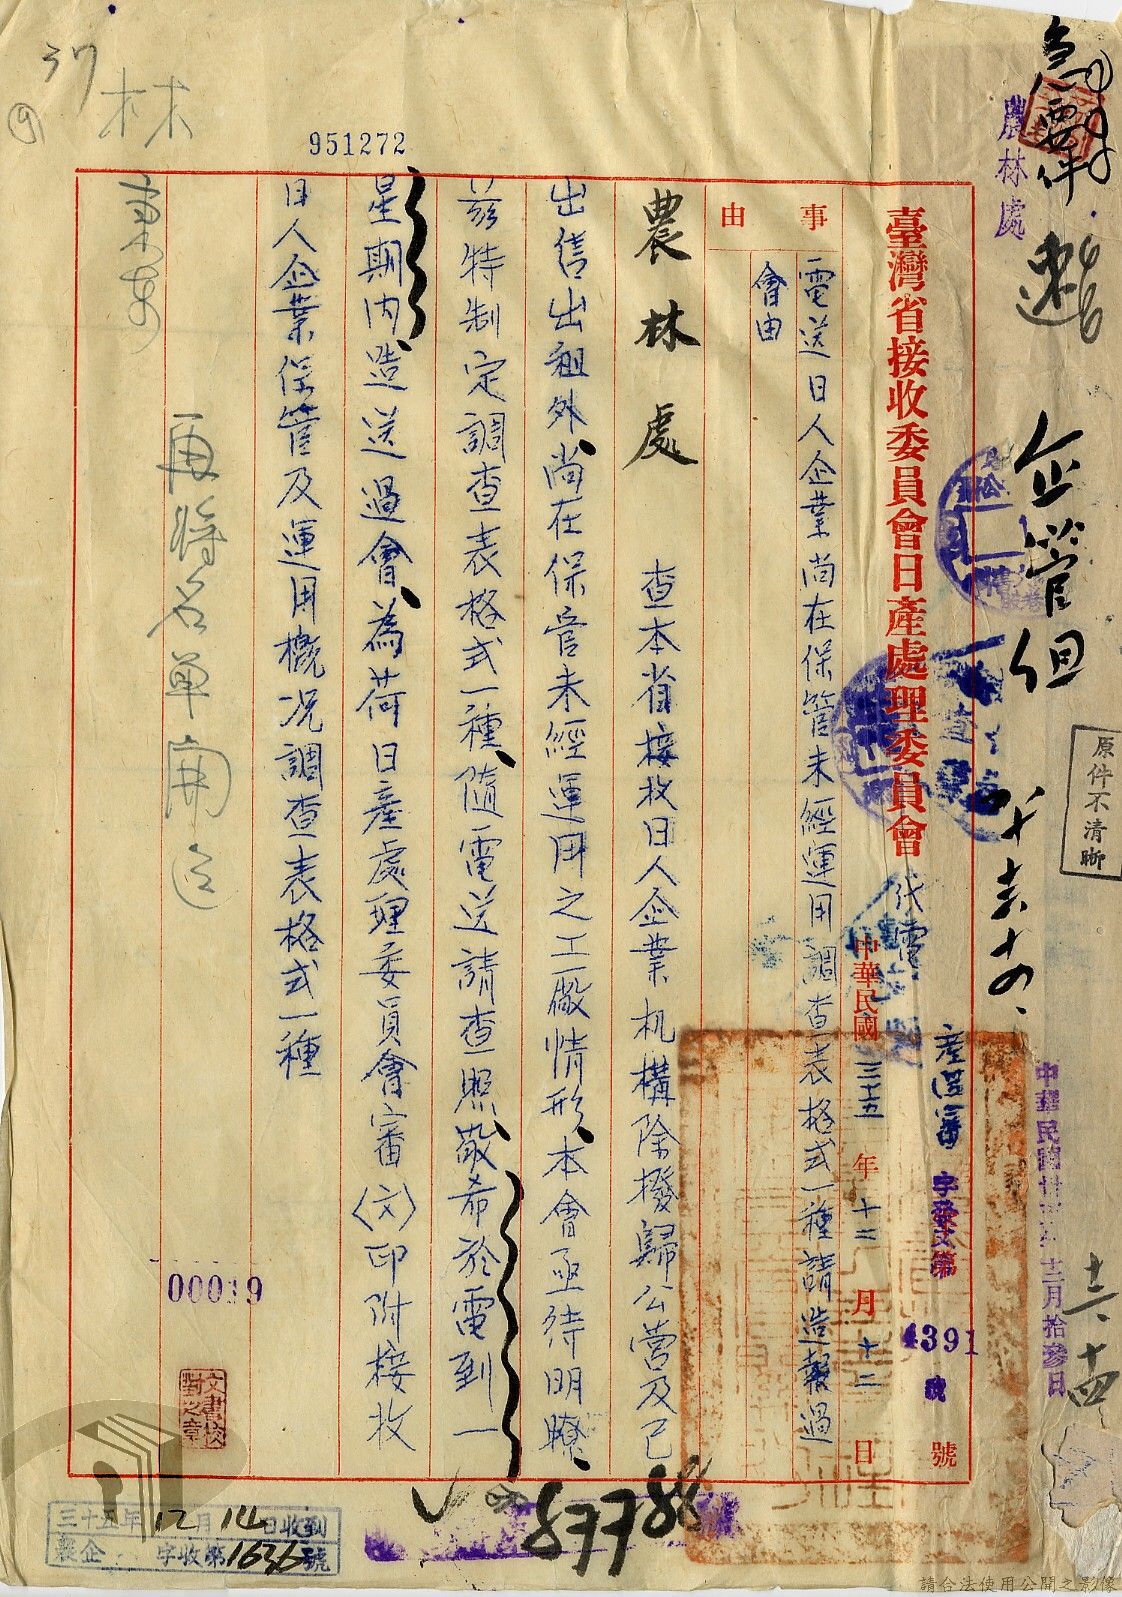 急要件
速
農林處
企管組
原件不清晰
臺灣省接收委員會日產處理委員會
代電
產
審
字發文第
4391
號
號
中華民國三十五年十二月十二日
事由
電送日人企業尚在保管未經運用調查表格式一種請造報過
會由
農林處
查本省接收日人企業机構除撥歸公營及已
出售出租外尚在保管未經運用之工廠情形本會亟待明瞭
茲特制定調查表格式一種隨電送請查照敬希於電到一
星期內造送過會為荷日產處理委員會審(文)印附接收
日人企業保管及運用概况調查表格式一種
再將名單開
951272
37
林
00019
文書校對之章
三十五年12月14日收到
農企 字收第1636號
87788
請合法使用公開之影像